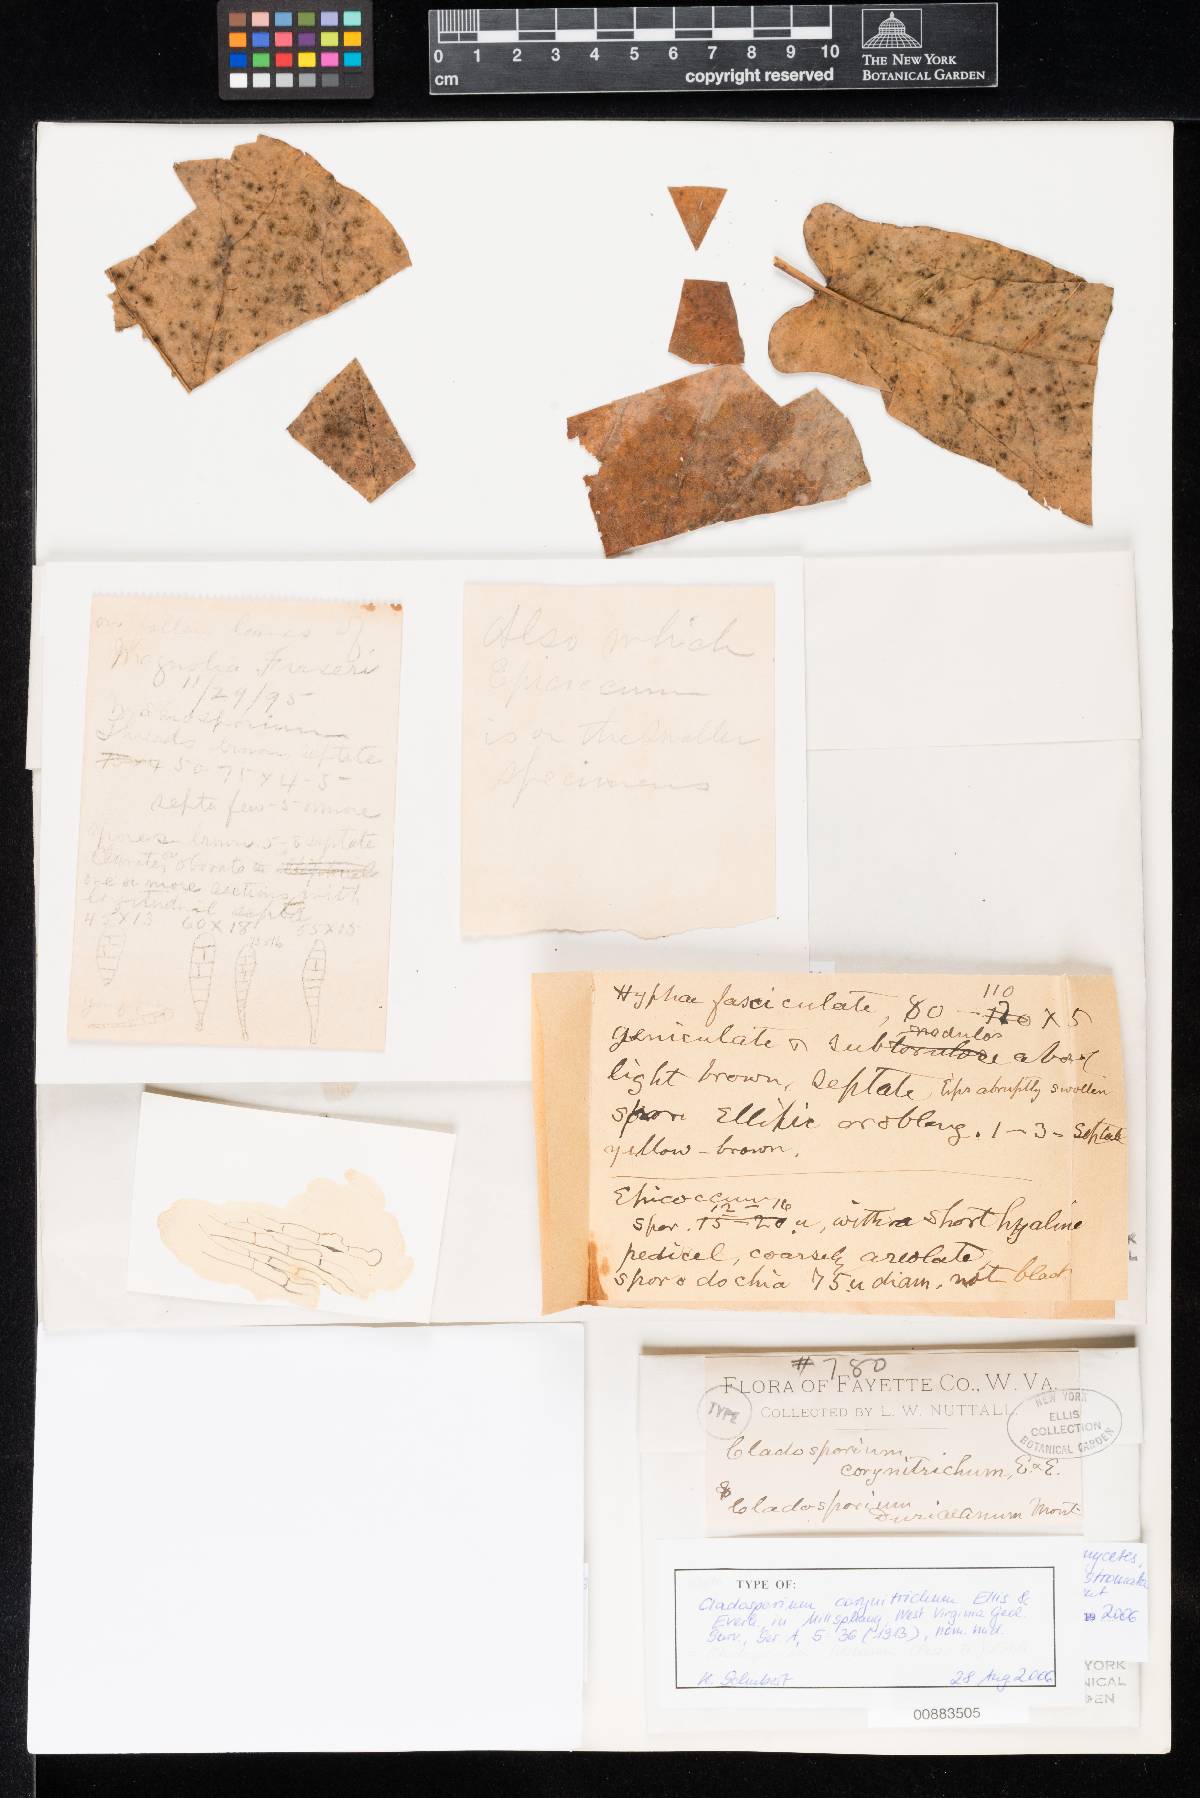 0 1 2 3 4 5 6 7 8 9 10
cm
copyright reserved
THE NEW YORK
BOTANICAL GARDEN
on fallen leaves of
Magnolia Fraseri
11/29/95
threads brown septate
75 x 4 50-75 x 4-5
septa few-5-or more
spores brown 5-8 septate
clavate, or obovate
one or more sections with
longitudinal septa
45 x 13 60 x 18 55 x 15
Also which
Epicoccum
is on the smaller
specimens
Hyphae fasciculate, 80 - 110 x 5
geniculate & subnodulose above
light brown, septate tips abruptly swollen
spore elliptic or oblong. 1-3-septate
yellow-brown.
Epicoccum
12-16
spor. 15-20 u, with a short hyaline
pedicel, coarsely areolate
sporodochia 75 u diam. not black
#780
FLORA OF FAYETTE CO., W. VA.
COLLECTED BY L. W. NUTTALL.
TYPE
NEW YORK
ELLIS
COLLECTION
BOTANICAL GARDEN
Cladosporium
corynitrichum, E. & E.
& Cladosporium
Duriaeanum Mont
TYPE OF:
Cladosporium corynitrichum Ellis &
Everh. in Millspaugh, West Virginia Geol.
Surv., Ser. A, 5: 36 (1913), nom. nud.
K. Schubert 28 Aug 2006
mycetes,
stromata
2006
YORK
NICAL
DEN
00883505